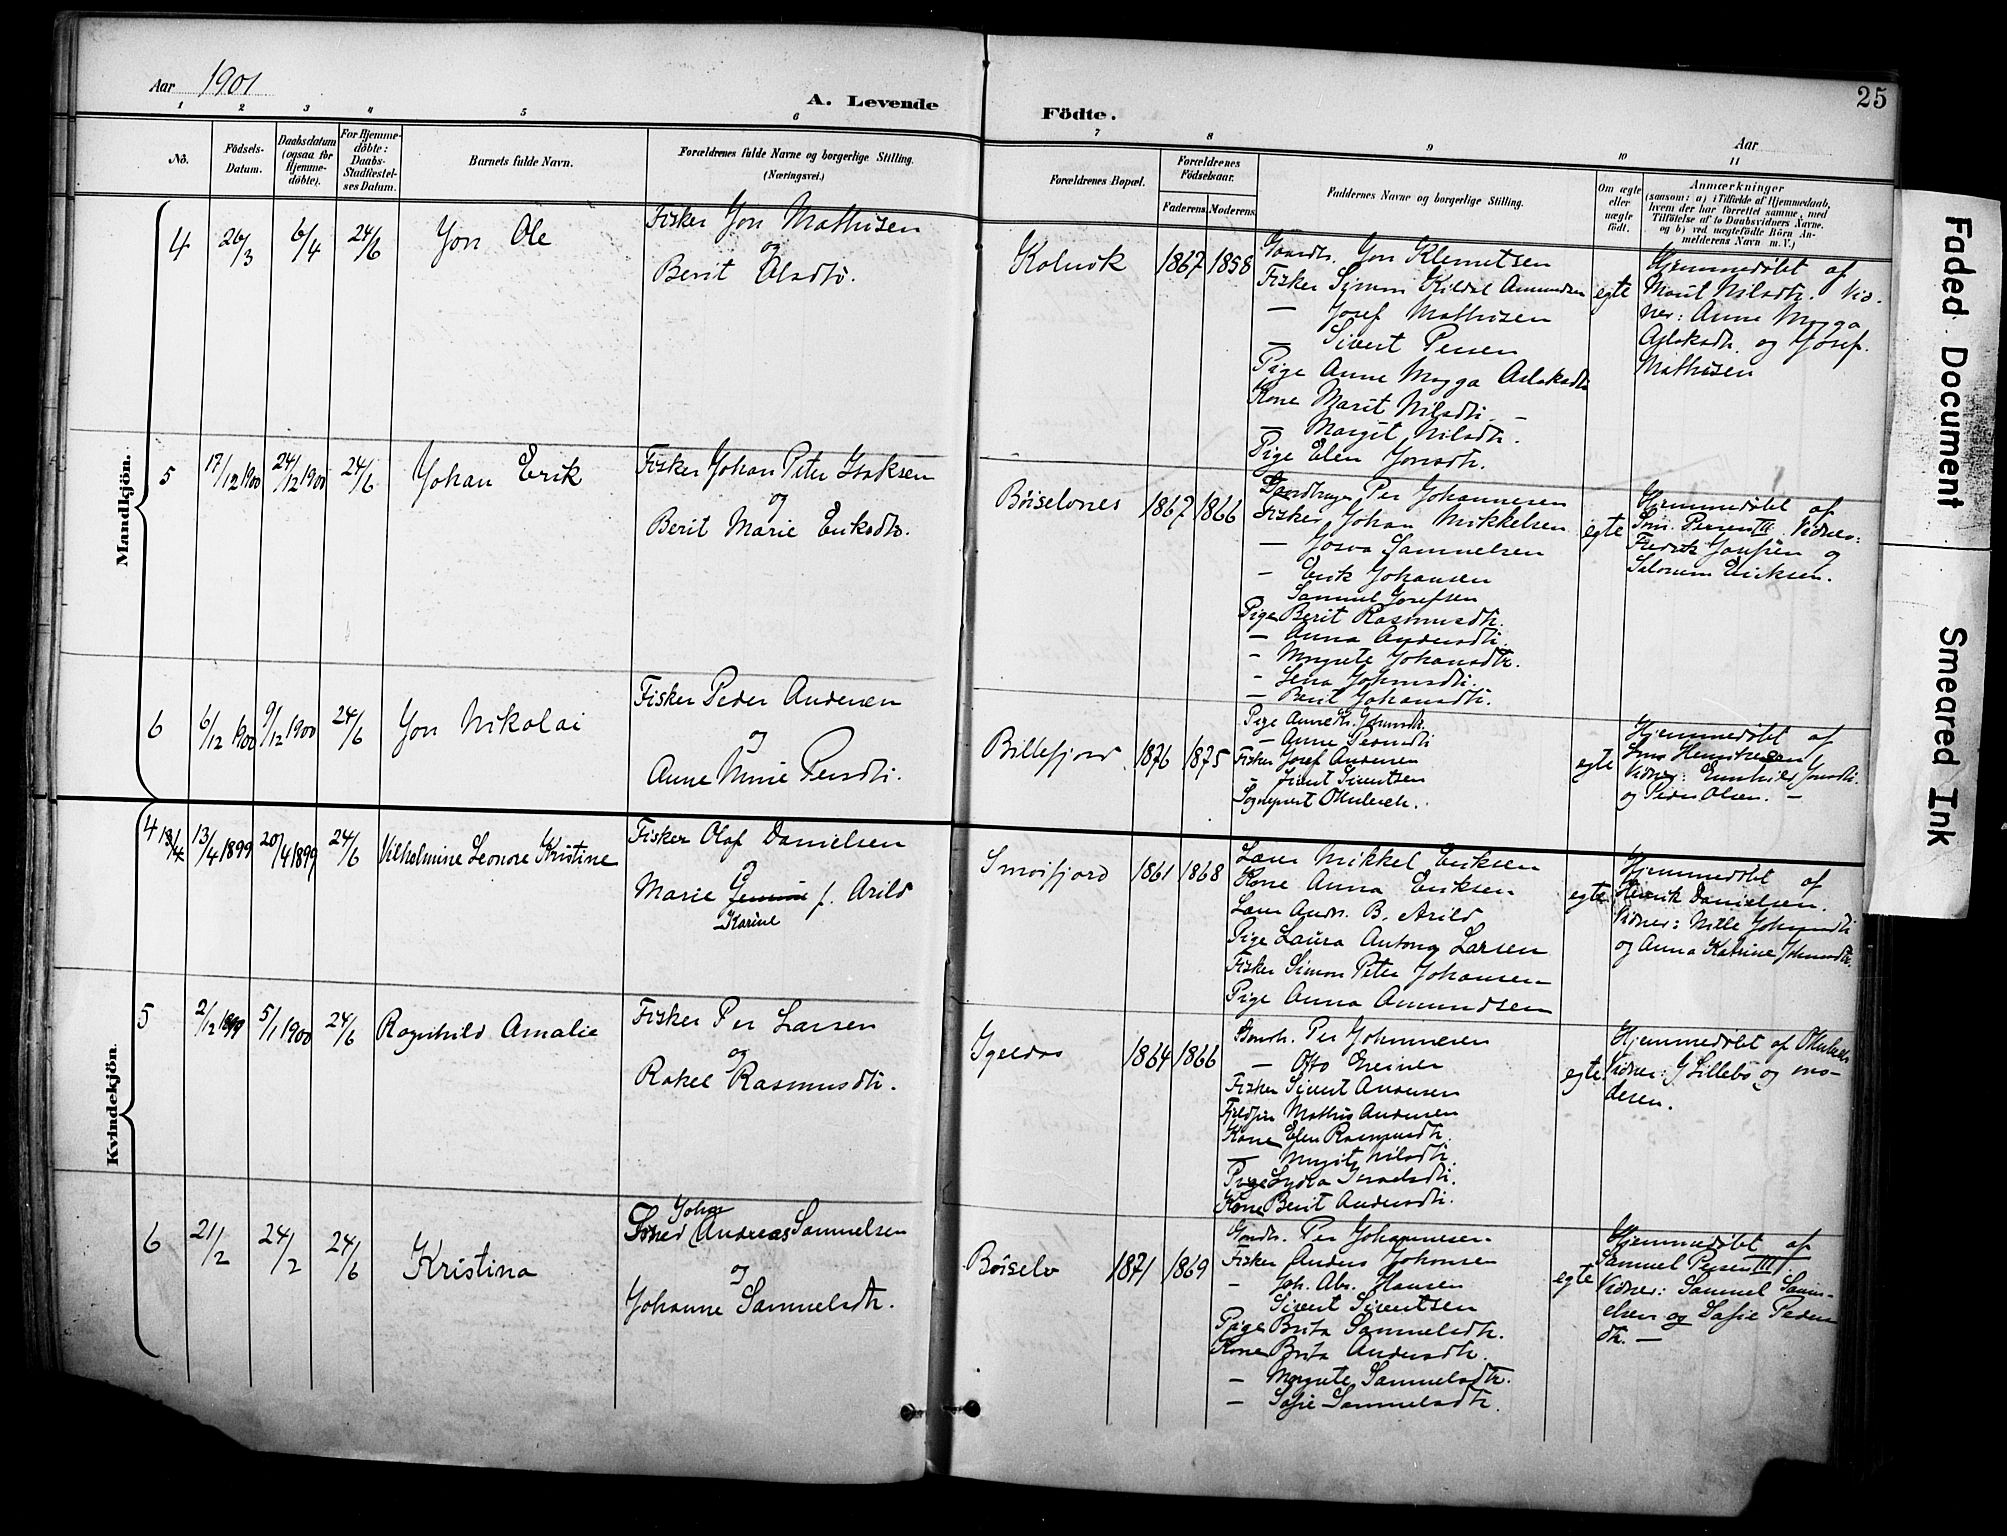 25
Aar 1901
A. Levende Födte.
Aar
1 2 3 4 5 6 7 8 9 10 11
No.
Födsels-Datum.
Daabsdatum (ogsaa for Hjemme-döbte).
For Hjemme-döbte: Daabs-Stadfæstel-ses Datum.
Barnets fulde Navn.
Forældrenes fulde Navne og borgerlige Stilling.
(Næringsvei.)
Forældrenes Bopæl.
Forældrenes Födselsaar.
Faderens. Moderens.
Faddernes Navne og borgerlige Stilling.
Om ægte eller uægte födt.
Anmærkninger
(saasom: a) i Tilfælde af Hjemmedaab, hvem der har forrettet samme, med Tilföielse af to Daabsvidners Navne, og b) ved uægtefödte Börn Anmelderens Navn m. V.)
Mandkjön.
4 26/3 6/4 24/6 Jon Ole
Fisker Jon Mathisen
og
Berit Olsdtr.
Kolvik 1867 1858
Gaardbr. Jon Klemetsen
Fisker Simon Kildal Amundsen
— Josef Mathisen
— Sivert Persen
Pige Anne Magga Aslaksdtr
Kone Marit Nilsdtr. —
— Margit Nilsdtr.
Pige Elen Jonsdtr.
egte
Hjemmedøbt af
Marit Nilsdtr. Vid-
ner: Anne Magga
Aslaksdtr. og Josef
Mathisen
5 17/12 1900 24/12 1900 24/6 Johan Erik
Fisker Johan Peter Isaksen
og
Berit Marie Eriksdtr.
Børselvnes 1867 1866
Gaardbruger Per Johannesen
Fisker Johan Mikkelsen
— Josva Samuelsen
— Erik Johansen
Samuel Josefsen
Pige Berit Rasmusdtr.
— Anna Andersdtr.
— Magrete Johansdtr.
— Lena Johansdtr.
— Berit Johansdtr.
egte
Hjemmedøbt af
Sam. Persen III. Vidner:
Fredrik Josefsen og
Salomon Eriksen.
6 6/12 1900 9/12 1900 24/6 Jon Nikolai
Fisker Peder Andersen
og
Anne Marie Persdtr.
Billefjord 1876 1875
— Anne Persdtr
Fisker Josef Andersen
— Sivert Sivertsen
egte
Hjemmedøbt af
og Peder Olsen. —
Kvindekjön.
4 13/4 13/4 1899 20/4 1899 24/6 Vilhelmine Leonore Kristine
Fisker Olaf Danielsen
og
Marie f. Arild
Karine
Smørfjord 1861 1868
Lærer Mikkel Eriksen
Kone Anna Eriksen
Lærer Andr. B. Arild
Pige Laura Antona Larsen
Fisker Simon Peter Johansen
Pige Anna Amundsen
egte
Hjemmedøbt af
Henrik Danielsen.
Vidner: Nille Johansdtr
og Anna Katrine Johansdtr.
5 2/12 1899 5/1 1900 24/6 Ragnhild Amalie
Fisker Per Larsen
og
Rakel Rasmusdtr.
Igeldas 1864 1866
Gaardbr. Per Johannesen
— Otto Greiner
Fisker Sivert Andersen
Fjeldfin Mathis Andersen
Kone Elen Rasmusdtr.
— Margit Nilsdtr.
Pige Lydia Israelsdtr.
Kone Berit Andersdtr.
egte
Hjemmedøbt af
Vidner: J Lillebø og mo-
deren.
6 21/2 24/2 24/6 Kristina
Johan
Fisker Andreas Samuelsen
og
Johanne Samuelsdtr.
Børselv 1871 1869
Gaardbr. Per Johannesen
Fisker Anders Johansen
— Joh. Abr. Hansen
Sivert Sivertsen
Pige Brita Samuelsdtr.
Kone Brita Andersdtr.
— Magrete Samuelsdtr.
— Sofie Samuelsdtr.
egte
Hjemmedøbt af
Samuel Persen III.
Vidner: Samuel Samu-
elsen og Sofie Peders
dtr. —
Faded Document
Smeared Ink